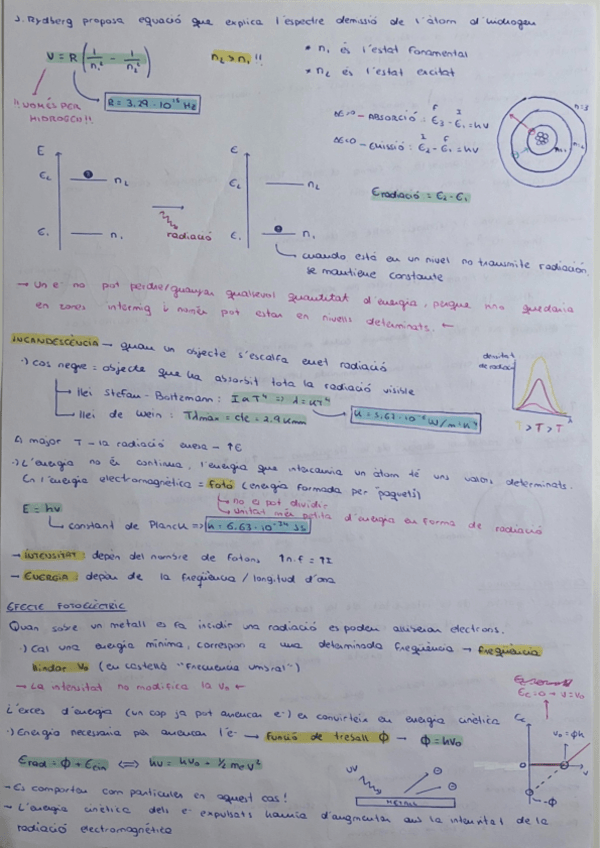 J. Rydberg proposa equació que explica l'espectre d'emissió de l'àtom d'hidrogen
ν = R (1/n₁² - 1/n₂²)
n₂ > n₁ !!
* n₁ és l'estat fonamental
* n₂ és l'estat excitat
!! NOMÉS PER HIDROGEN !!
R = 3.29 · 10¹⁵ Hz
ΔE>0 - ABSORCIÓ : E₃ - E₁ = hν
ΔE<0 - EMISSIÓ : E₂ - E₁ = hν
Eradiació = E₂ - E₁
n=3
E
E₂
n₂
E₁
n₁
radiació
E
E₂
n₂
E₁
n₁
cuando está en un nivel no transmite radiación.
se mantiene constante
→ Un e⁻ no pot perdre/guanyar qualsevol quantitat d'energia, perque sinó quedaria
en zones intermig i només pot estar en nivells determinats. ←
INCANDESCÈNCIA → quan un objecte s'escalfa emet radiació
·) Cos negre = objecte que ha absorbit tota la radiació visible
llei Stefan-Boltzmann : I α T⁴ ⇒ I = KT⁴
K = 5.67 · 10⁻⁸ W/m²K⁴
llei de Wein : Tλmax = cte = 2.9 Kmm
densitat de radiació
λ
T > T > T
A major T - la radiació - ↑E
·) L'energia no és contínua, l'energia que intercanvia un àtom té uns valors determinats.
En l'energia electromagnètica = fotó (energia formada per "paquets")
no es pot dividir
unitat més petita d'energia en forma de radiació
E = hν
constant de Planck ⇒ h = 6.63 · 10⁻³⁴ Js
→ INTENSITAT : depèn del nombre de fotons, ↑n.f = ↑I
→ ENERGIA : depèn de la freqüència / longitud d'ona
EFECTE FOTOELÈCTRIC
Quan sobre un metall es fa incidir una radiació es poden alliberar electrons.
·) Cal una energia mínima, correspon a una determinada freqüència → freqüència
llindar ν₀ (en castellà "frecuencia umbral")
→ La intensitat no modifica la ν₀ ←
L'excés d'energia (un cop ja pot arrencar e⁻) es converteix en energia cinètica
·) Energia necessaria per arrencar l'e⁻ → Funció de treball Φ → Φ = hν₀
Erad = Φ + Ecin ⟺ hν = hν₀ + ½ mₑv²
Ec=0 → ν=ν₀
Ec
ν₀ = Φ/h
ν
-Φ
UV
METALL
→ Es comporten com partícules en aquest cas!
→ L'energia cinètica dels e⁻ expulsats hauria d'augmentar amb la intensitat de la
radiació electromagnètica